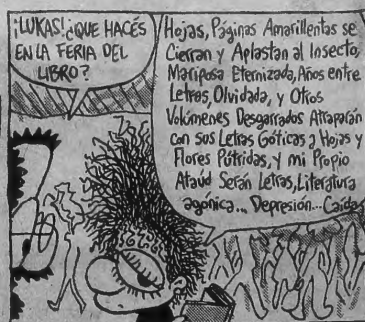 ¡LUKAS! ¿QUE HACÉS
EN LA FERIA DEL
LIBRO?
Hojas, Páginas Amarillentas se
Cierran y Aplastan al Insecto,
Mariposa Eternizada, Años entre
Letras, Olvidada, y Otros
Volúmenes Desgarrados Atraparán
con sus Letras Góticas a Hojas y
Flores Pútridas, y mi Propio
Ataúd Serán Letras, Literatura
agonica... Depresión... Caída